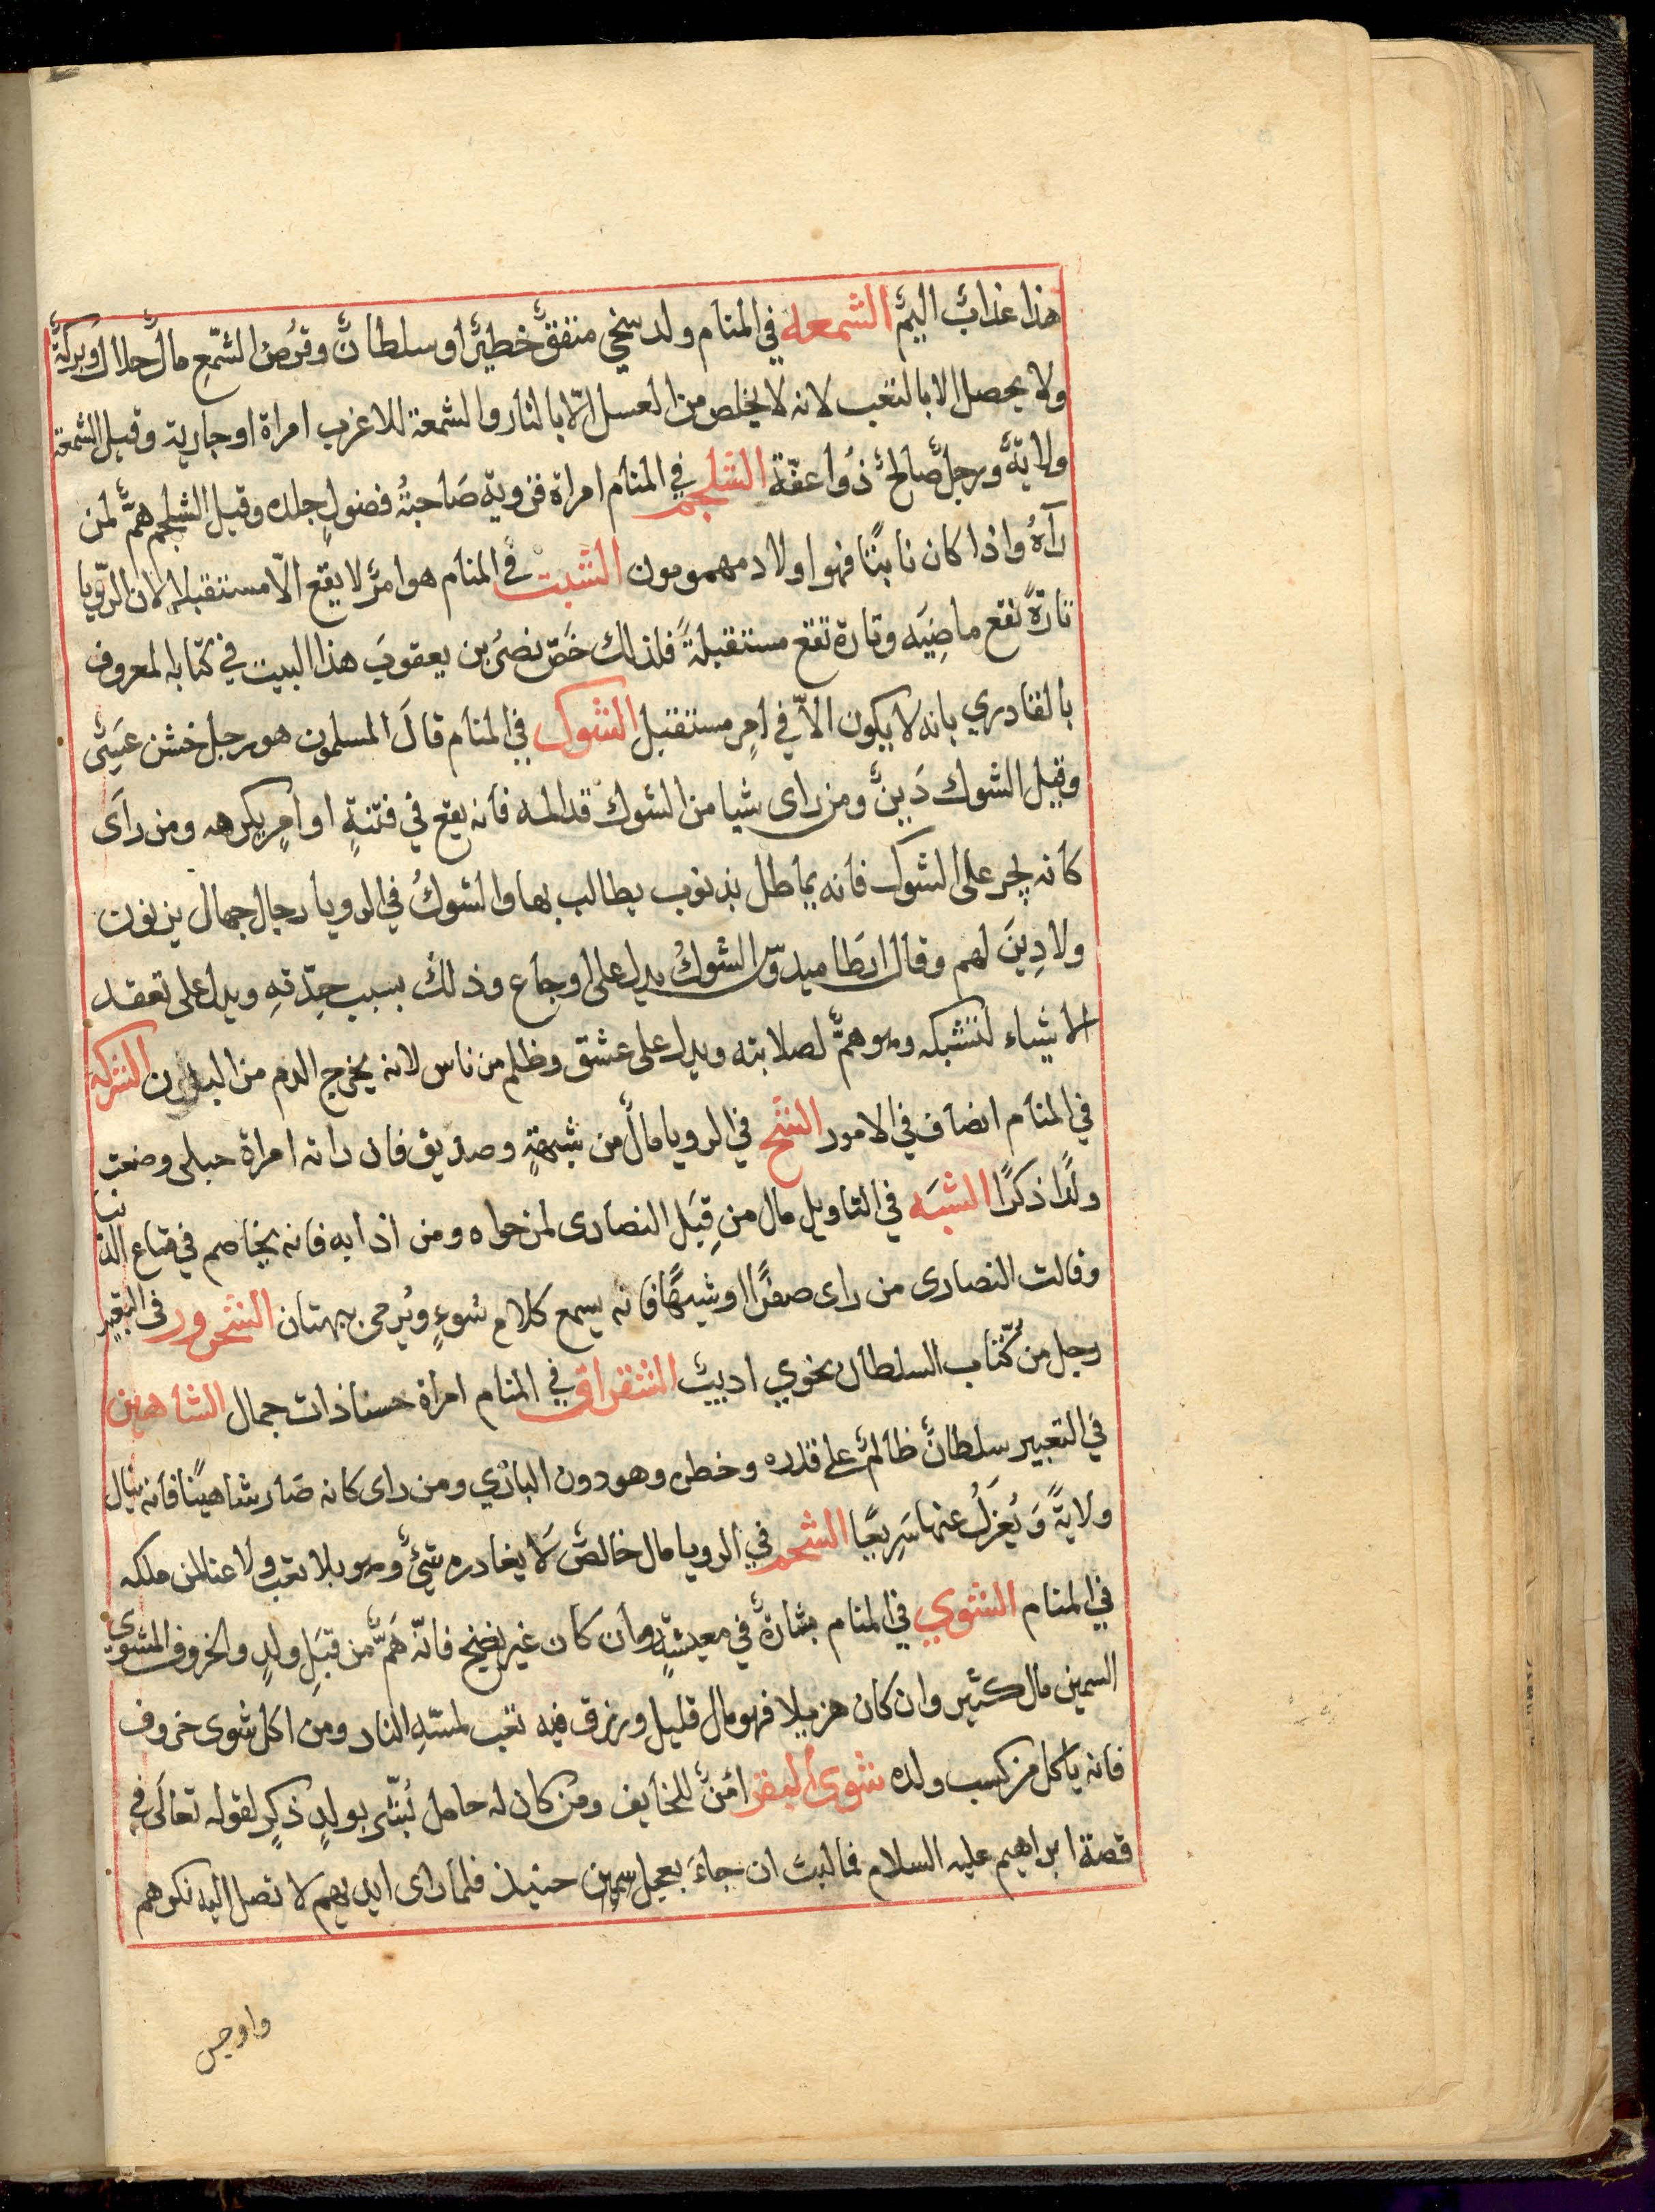 هذا عذابٌ اليمٌ الشمعه في المنام ولد سخي منفقٌ خطيرٌ او سلطانٌ وقرصُ الشمّعِ مالٌ حلالٌ وبركةٌ
ولا يحصل الا بالتعب لانه لا يخلص من العسل الّا بالنار والشمعة للاعزب امراة او جارية وقيل الشمعة
ولايةٌ ورجلٌ صالحٌ ذُوا عفّة الشلجم في المنام امراة قروية صَاحبةُ فضولٍ جلده وقيل الشلجم همٌّ لمن
رآهُ واذا كان نابتًا فهوا اولاد مهمومون الشبت في المنام هو امرٌ لا يقع الّا مستقبلا لان الرّويا
تارةً تقع ماضِيَه وتارة تقع مستقبلةً فلذلك خَصّ نصرُ بن يعقوبَ هذا البيت في كتابه المعروف
بالقادري بانه لا يكون الاّ في امرٍ مستقبل الشوك في المنام قالَ المسلمون هو رجل خشن عَسِيٌ
وقيل الشوك دَينٌ ومن راى شيا من الشوك قد المه فانه يقع في فتنةٍ او امرٍ يكرهه ومن راَى
كانه يجر على الشوك فانه يماطل بذنوب يطالب بها والشوكُ في الرويا رجال جهال يزنون
ولا دِينَ لهم وقال ارطاميدوّس الشوكُ يدل على اوجاع وذلك بسبب حِدّتهِ ويدل على تعقد
الاشياء لتشبكه وهو همٌّ لصلابته ويدل على عشق وظلم من ناس لانه يخرج الدم من البدن الشركه
في المنام انصاف في الامور الشح في الرويا مالٌ من شبهةٍ وصديق فان راته امراة حبلى وضعت
ولدًا ذكرًا الشبَه في التاويل مال من قِبَل النصارى لمن حواه ومن اذابه فانه يخاصم في متاع الدنيا
وقالت النصارى من راى صفرًا او شبهًا فانه يسمع كلام سُوءٍ ويُرمى ببهتان الشحرور في التعبير
رجل من كُتّاب السلطان نحوي اديبٌ الشقراق في المنام امراة حسنا ذات جمال الشاهين
في التعبير سلطانٌ ظالمٌ على قدره وخطره وهو دون البازي ومن راى كانه صَار شاهينًا فانه ينال
ولايةً وَيُعزَلُ عنها سَرِيعًا الشحم في الرويا مال خالصٌ لَا يغادره شيءٌ وهو بلا تعب ولا عنا لمن ملكه
في المنام الشوي في المنام بشارةٌ في معيشةٍ وان كان غير نضيج فانّه همٌّ من قِبَلِ ولدٍ والخروف المشوى
السمين مال كثير وان كان هزيلا فهو مال قليل ورزق فيه تعب لمسّهِ النار ومن اكل شوى خروف
فانه ياكل من كسب ولده شوى البقر امْنٌ للخايف ومن كان له حامل بُشّر بولدٍ ذكرٍ لقوله تعالى في
قصة ابراهيم عليه السلام فما لبث ان جاءَ بعجل سمين حنيذ فلما راى ايديهم لا تصل اليه نكرهم
واوجس